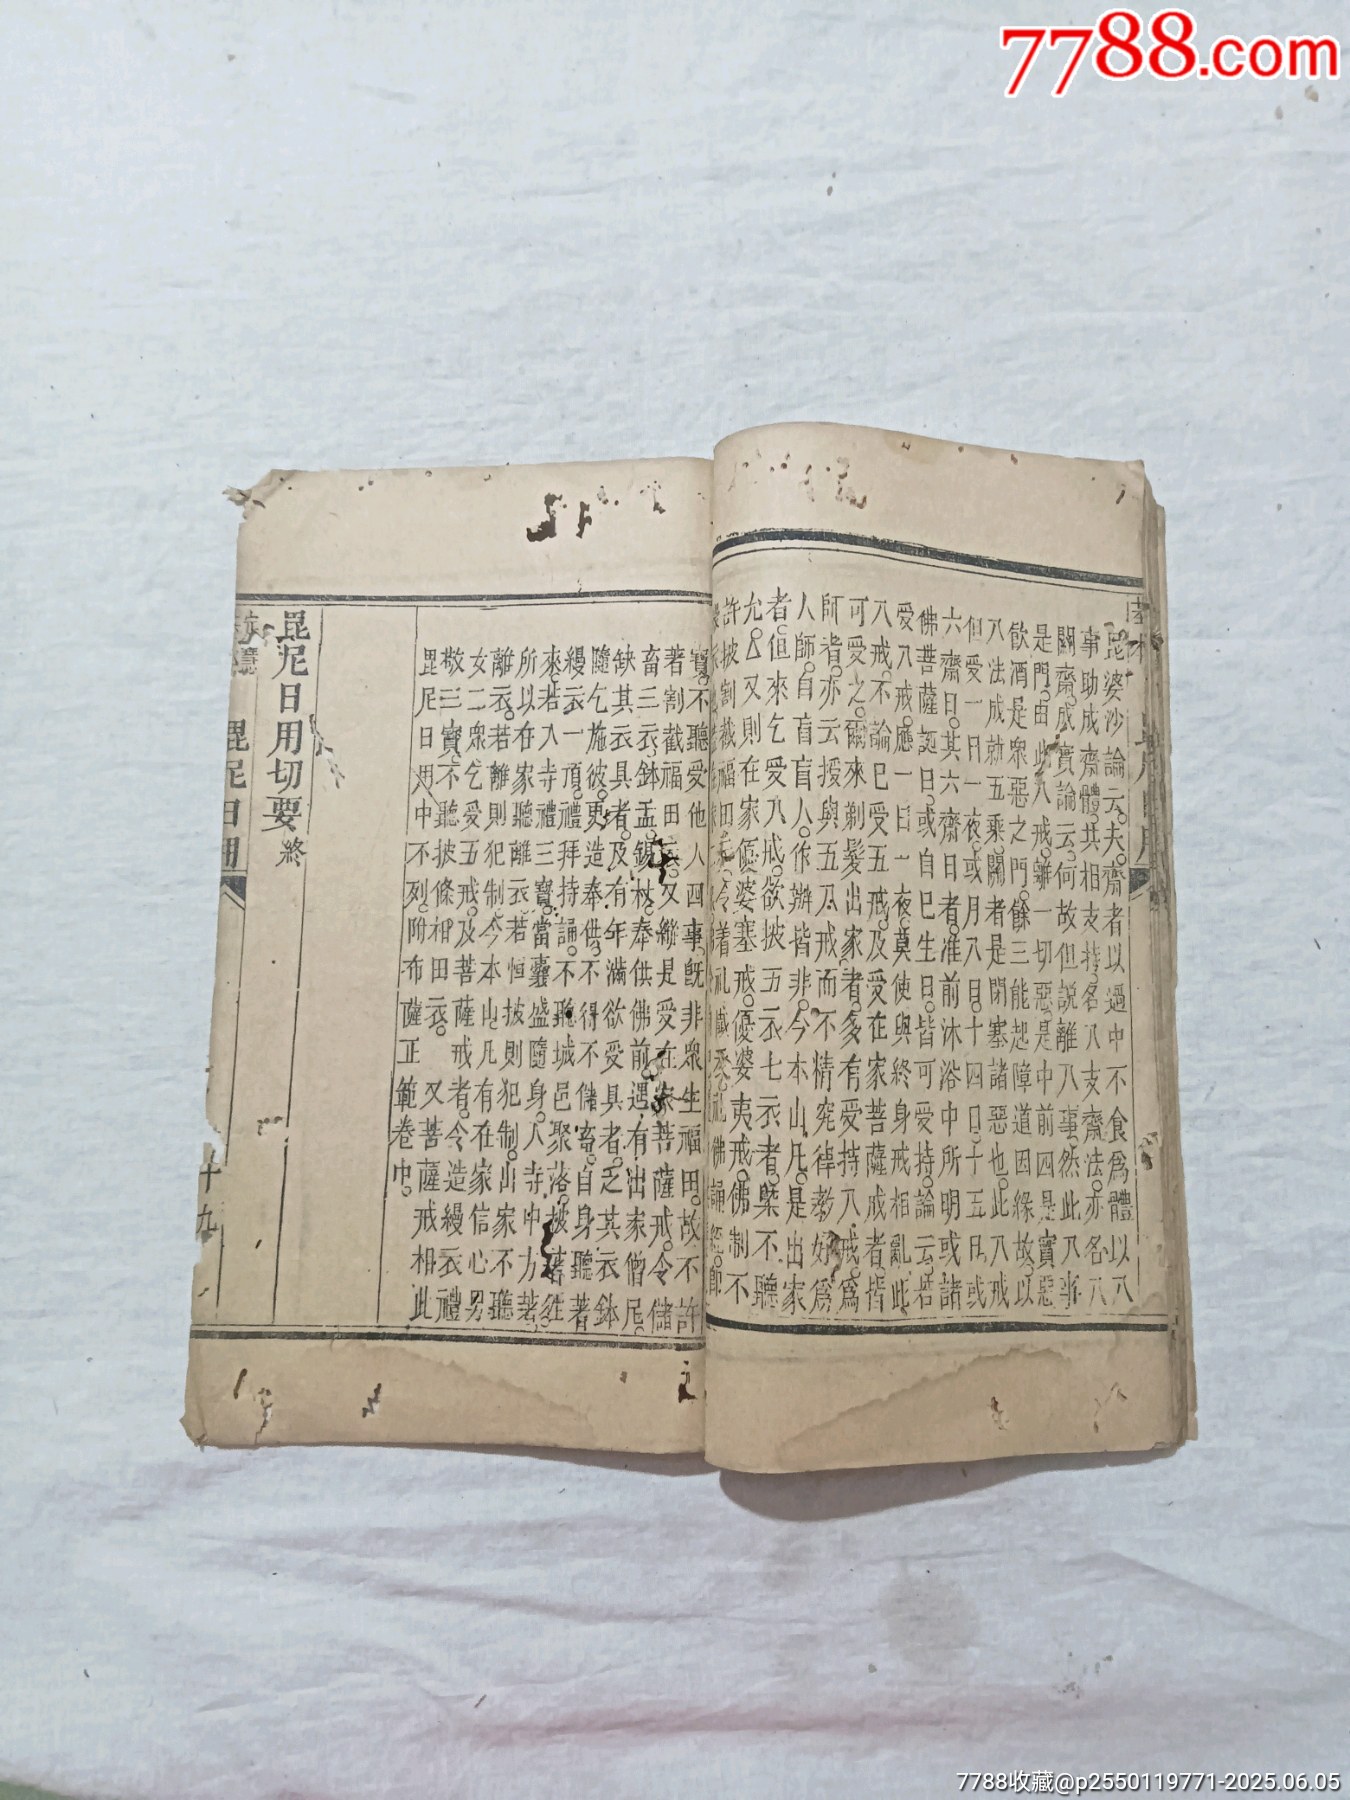 7788.com
毘婆沙論云。夫齋者以過中不食爲體以八
事助成齋體。共相支持名八支齋法。亦名八
關齋。成實論云。何故但說離八事。然此八事
是門。由此八戒。離一切惡。是中前四是實惡
飲酒是衆惡之門。餘三能起障道因緣故。以
八法成就五乘。關者是閉塞諸惡也。此八戒
但受一日一夜。或月八日。十四日。十五日。或
六齋日。其六齋日者。准前沐浴中所明或諸
佛菩薩誕日。或自巳生日。皆可受持。論云。若
受八戒。應一日一夜。莫使與終身戒相亂此
八戒。不論巳受五戒。及受在家菩薩戒者。皆
可受之。爾來剃髮出家。者多有受持八戒。爲
師者。亦云授與五八戒而不精究律教好爲
人師。自盲盲人。作辦皆非。今本山凡是出家
者。但來乞受八戒。欲披五衣七衣者。槩不聽
允。又則在家優婆塞戒。優婆夷戒。佛制不
許披割截福田衣。今着礼懺受礼佛誦經。節
寶。不聽受他人四事。旣非衆生福田。故不許
著割截福田衣。又緣是受在家菩薩戒。令儲
畜三衣鉢盂。錫杖。奉供佛前遇有出家僧尼。
缺其衣具者。及有年滿欲受具者。之其衣鉢
隨乞施彼。更造奉供。不得不儲畜。自身聽著
縵衣一頂。禮拜持誦。不聽城邑聚落。披著往
來。若入寺禮三寶。當囊盛隨身。入寺中方著。
所以在家聽離衣。若恒披則犯制。出家不聽
離衣。若離則犯制。今本山凡有在家信心男
女二衆乞受五戒。及菩薩戒者。令造縵衣禮
敬三寶。不聽披條相田衣。又菩薩戒相此
毘尼日用中不列。附布薩正範卷中。
毘尼日用切要終
毘尼日用
十九
7788收藏@p2550119771-2025.06.05